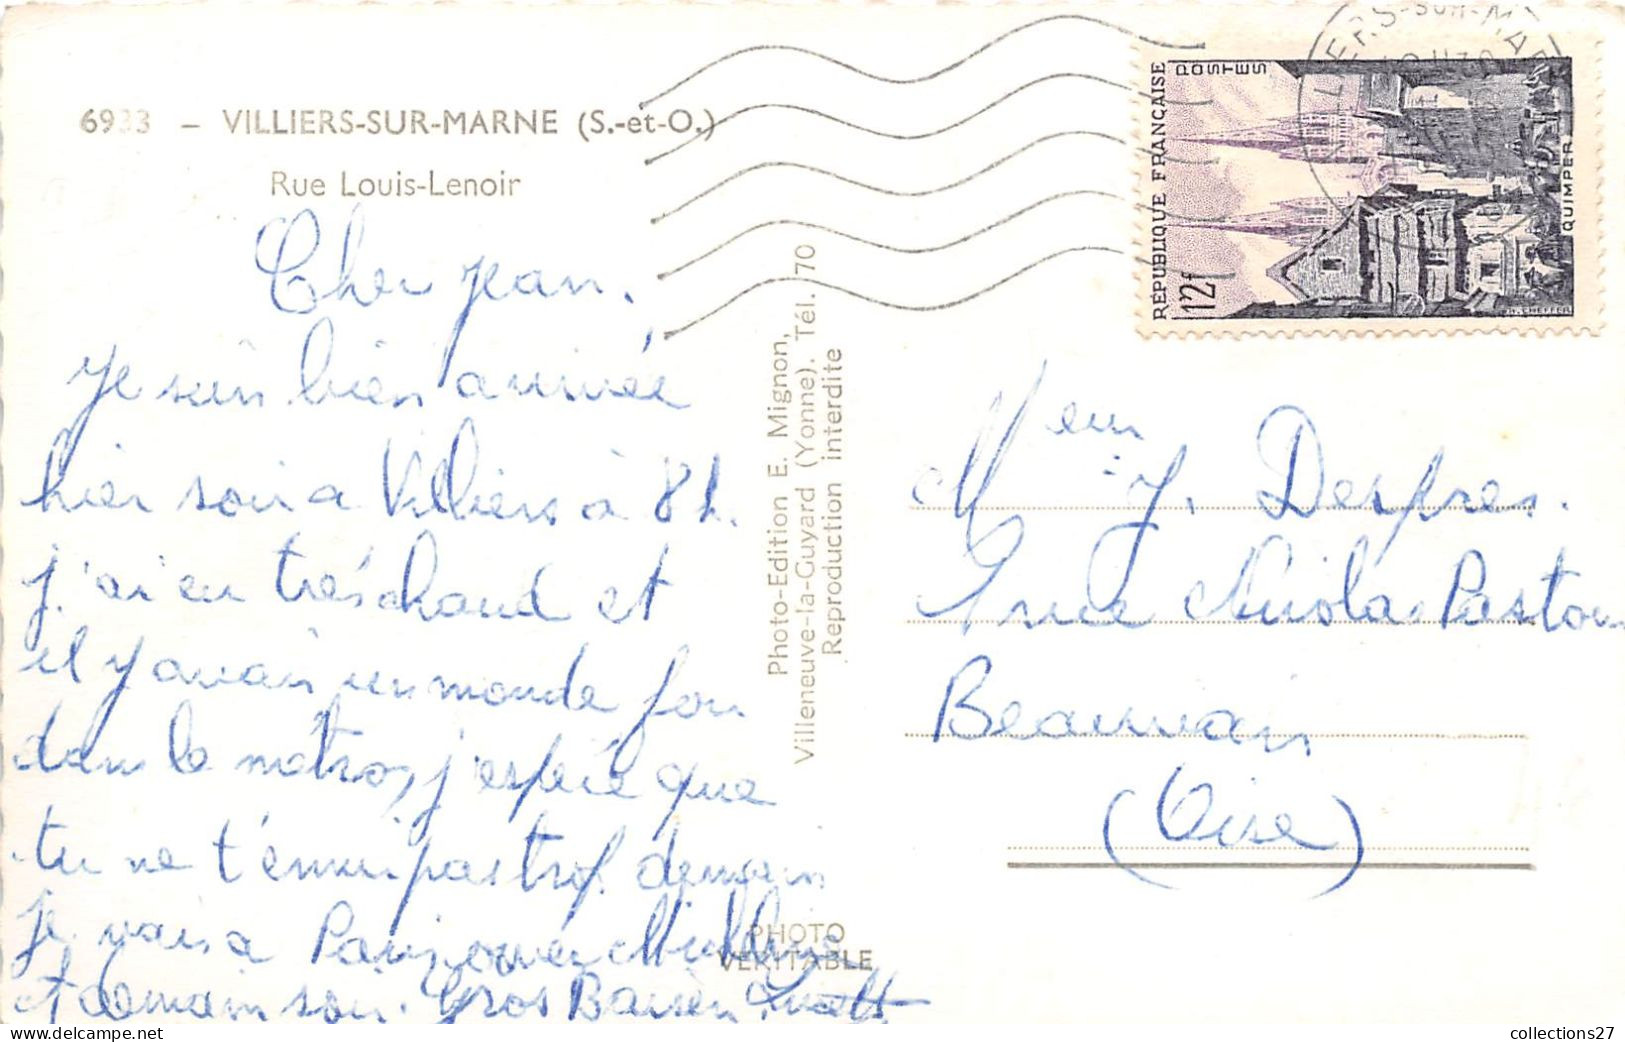 6933 – VILLIERS-SUR-MARNE (S.-et-O.)
Rue Louis-Lenoir
Cher Jean.
Je suis bien arrivée
hier soir a Villiers à 8h.
j'ai eu très chaud et
il y avais un monde fou
dans le métro, j'espère que
tu ne t'ennui pas trop. demain
je vais a Paris
et demain soir. Gros Baiser
Photo-Edition E. Mignon,
Villeneuve-la-Guyard (Yonne). Tél. 70
Reproduction interdite
PHOTO
VERITABLE
RÉPUBLIQUE FRANÇAISE
POSTES
12f
QUIMPER
LIERS-SUR-MAR
Meur J. Despres.
rue Nicolas Pastour
Beauvais
(Oise)
collections27